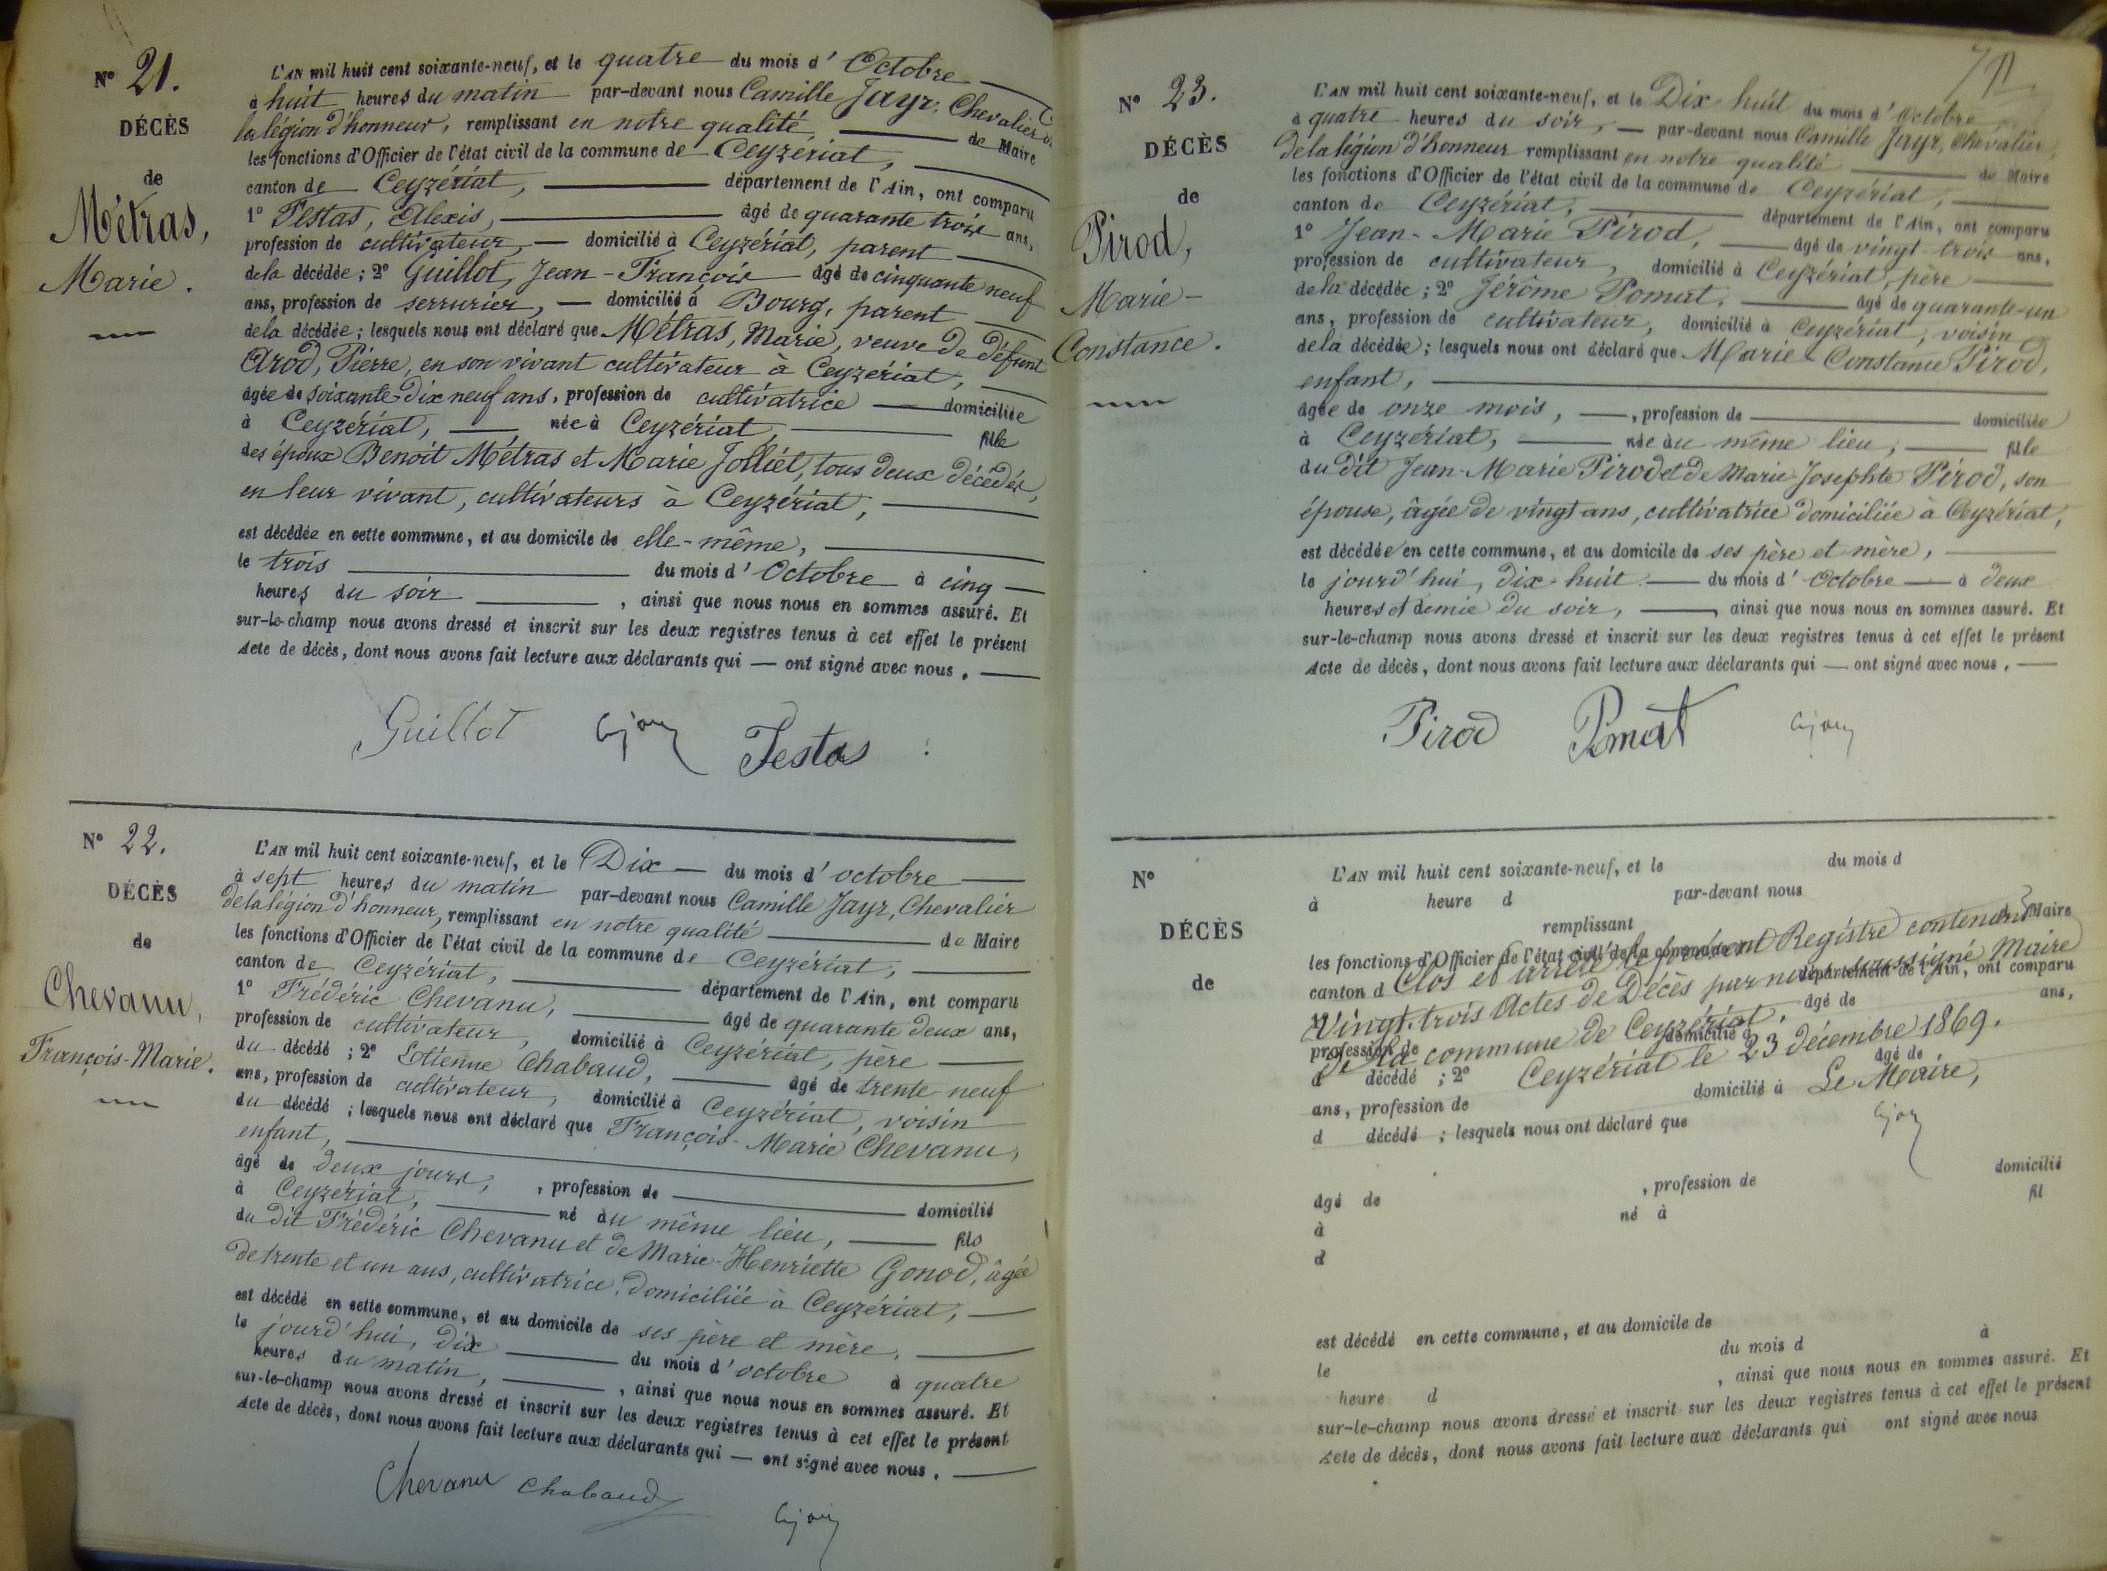 N° 21.
DÉCÈS
de
Métras,
Marie.
L'AN mil huit cent soixante-neuf, et le quatre du mois d'Octobre
à huit heures du matin par-devant nous Camille Jayr, Chevalier de
la légion d'honneur, remplissant en notre qualité, de Maire
les fonctions d'Officier de l'état civil de la commune de Ceyzériat,
canton de Ceyzériat, département de l'Ain, ont comparu
1° Testas, Alexis, âgé de quarante trois ans,
profession de cultivateur, domicilié à Ceyzériat, parent
de la décédée ; 2° Guillot, Jean-François âgé de cinquante neuf
ans, profession de serrurier, domicilié à Bourg, parent
de la décédée ; lesquels nous ont déclaré que Métras, Marie, veuve de défunt
Arod, Pierre, en son vivant cultivateur à Ceyzériat,
âgée de soixante-dix neuf ans, profession de cultivatrice domiciliée
à Ceyzériat, née à Ceyzériat, fille
des époux Benoit Métras et Marie Jolliet, tous deux décédés,
en leur vivant, cultivateurs à Ceyzériat,
est décédée en cette commune, et au domicile de elle-même,
le trois du mois d'Octobre à cinq
heures du soir, ainsi que nous nous en sommes assuré. Et
sur-le-champ nous avons dressé et inscrit sur les deux registres tenus à cet effet le présent
Acte de décès, dont nous avons fait lecture aux déclarants qui — ont signé avec nous.
Guillot Testas
N° 22.
DÉCÈS
de
Chevanu,
François-Marie.
L'AN mil huit cent soixante-neuf, et le Dix du mois d'octobre
à sept heures du matin par-devant nous Camille Jayr, Chevalier
de la légion d'honneur, remplissant en notre qualité de Maire
les fonctions d'Officier de l'état civil de la commune de Ceyzériat,
canton de Ceyzériat, département de l'Ain, ont comparu
1° Frédéric Chevanu, âgé de quarante deux ans,
profession de cultivateur, domicilié à Ceyzériat, père
du décédé ; 2° Chabaud, âgé de trente neuf
ans, profession de cultivateur, domicilié à Ceyzériat, voisin
du décédé ; lesquels nous ont déclaré que François-Marie Chevanu,
enfant,
âgé de deux jours, , profession de domicilié
à Ceyzériat, né au même lieu, fils
du dit Frédéric Chevanu et de Marie-Henriette Gonod, âgée
de trente et un ans, cultivatrice, domiciliée à Ceyzériat,
est décédé en cette commune, et au domicile de ses père et mère,
le jourd'hui, dix du mois d'octobre à quatre
heures du matin, , ainsi que nous nous en sommes assuré. Et
sur-le-champ nous avons dressé et inscrit sur les deux registres tenus à cet effet le présent
Acte de décès, dont nous avons fait lecture aux déclarants qui — ont signé avec nous.
Chevanu Chabaud
N° 23.
DÉCÈS
de
Pirod,
Marie-
Constance.
L'AN mil huit cent soixante-neuf, et le Dix-huit du mois d'Octobre
à quatre heures du soir, par-devant nous Camille Jayr, Chevalier
de la légion d'honneur remplissant en notre qualité de Maire
les fonctions d'Officier de l'état civil de la commune de Ceyzériat,
canton de Ceyzériat, département de l'Ain, ont comparu
1° Jean-Marie Pirod, âgé de vingt-trois ans,
profession de cultivateur, domicilié à Ceyzériat, père
de la décédée ; 2° Jérôme Pomat, âgé de quarante-un
ans, profession de cultivateur, domicilié à Ceyzériat, voisin
de la décédée ; lesquels nous ont déclaré que Marie-Constance Pirod,
enfant,
âgée de onze mois, , profession de domiciliée
à Ceyzériat, née au même lieu, fille
du dit Jean-Marie Pirod et de Marie Josephte Pirod, son
épouse, âgée de vingt ans, cultivatrice domiciliée à Ceyzériat,
est décédée en cette commune, et au domicile de ses père et mère,
le jourd'hui, dix-huit du mois d'Octobre à deux
heures et demie du soir, , ainsi que nous nous en sommes assuré. Et
sur-le-champ nous avons dressé et inscrit sur les deux registres tenus à cet effet le présent
Acte de décès, dont nous avons fait lecture aux déclarants qui — ont signé avec nous.
Pirod Pomat
N°
DÉCÈS
de
L'AN mil huit cent soixante-neuf, et le du mois d
à heure d par-devant nous
remplissant de Maire
les fonctions d'Officier de l'état civil de la commune d
Clos et arrêté le présent Registre contenant
canton d département de l'Ain, ont comparu
Vingt-trois Actes de Décès par nous soussigné Maire
1° âgé de ans,
de la commune de Ceyzériat.
profession de domicilié à
Ceyzériat le 23 décembre 1869.
d décédé ; 2° âgé de
Le Maire,
ans, profession de domicilié à
d décédé ; lesquels nous ont déclaré que
âgé de , profession de domicilié
à né à fil
d
est décédé en cette commune, et au domicile de
le du mois d à
heure d , ainsi que nous nous en sommes assuré. Et
sur-le-champ nous avons dressé et inscrit sur les deux registres tenus à cet effet le présent
Acte de décès, dont nous avons fait lecture aux déclarants qui ont signé avec nous